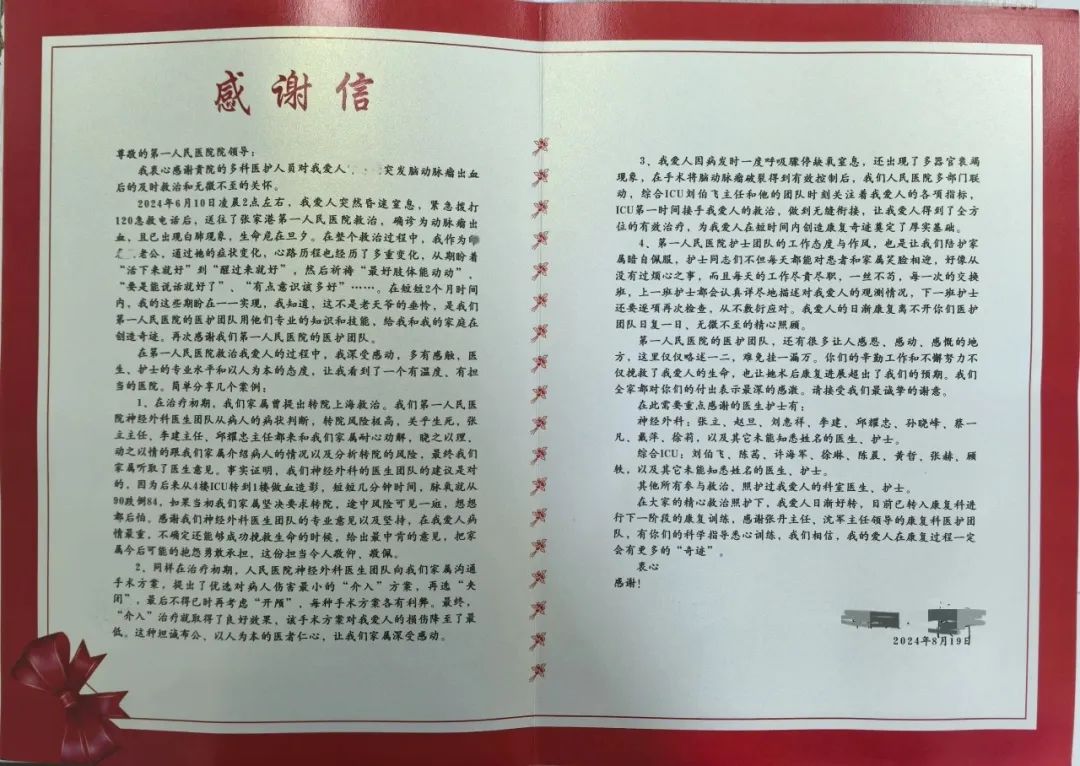 感谢信
尊敬的第一人民医院院领导:
我衷心感谢贵院的多科医护人员对我爱人 突发脑动脉瘤出血
后的及时救治和无微不至的关怀。
2024年6月10日凌晨2点左右,我爱人突然昏迷窒息,紧急拨打
120急救电话后,送往了张家港第一人民医院救治,确诊为动脉瘤出
血,且已出现白肺现象,生命危在旦夕。在整个救治过程中,我作为
老公,通过她的症状变化,心路历程也经历了多重变化,从期盼着
“活下来就好”到“醒过来就好”,然后祈祷“最好肢体能动动”,
“要是能说话就好了”、“有点意识该多好”……。在短短2个月时间
内,我的这些期盼在一一实现,我知道,这不是老天爷的垂怜,是我们
第一人民医院的医护团队用他们专业的知识和技能,给我和我的家庭在
创造奇迹。再次感谢我们第一人民医院的医护团队。
在第一人民医院救治我爱人的过程中,我深受感动,多有感触,医
生、护士的专业水平和以人为本的态度,让我看到了一个有温度、有担
当的医院。简单分享几个案例:
1、在治疗初期,我们家属曾提出转院上海救治。我们第一人民医
院神经外科医生团队从病人的病状判断,转院风险极高,关乎生死,张
立主任、李建主任、邱耀忠主任都来和我们家属耐心劝解,晓之以理、
动之以情的跟我们家属介绍病人的情况以及分析转院的风险,最终我们
家属听取了医生意见。事实证明,我们神经外科的医生团队的建议是对
的,因为后来从4楼ICU转到1楼做血造影,短短几分钟时间,脉氧就从
90跌倒84,如果当初我们家属坚决要求转院,途中风险可见一斑,想想
都后怕。感谢我们神经外科医生团队的专业意见以及坚持,在我爱人病
情最重,不确定还能够成功挽救生命的时候,给出最中肯的意见,把家
属今后可能的抱怨勇敢承担,这份担当令人敬仰、敬佩。
2、同样在治疗初期,人民医院神经外科医生团队向我们家属沟通
手术方案,提出了优选对病人伤害最小的“介入”方案,再选“夹
闭”,最后不得已时再考虑“开颅”,每种手术方案各有利弊。最终,
“介入”治疗就取得了良好效果,该手术方案对我爱人的损伤降至了最
低。这种坦诚布公、以人为本的医者仁心,让我们家属深受感动。
3、我爱人因病发时一度呼吸骤停缺氧窒息,还出现了多器官衰竭
现象,在手术将脑动脉瘤破裂得到有效控制后,我们人民医院多部门联
动,综合ICU刘伯飞主任和他的团队时刻关注着我爱人的各项指标,
ICU第一时间接手我爱人的救治,做到无缝衔接,让我爱人得到了全方
位的有效治疗,为我爱人在短时间内创造康复奇迹奠定了厚实基础。
4、第一人民医院护士团队的工作态度与作风,也是让我们陪护家
属暗自佩服,护士同志们不但每天都能对患者和家属笑脸相迎,好像从
没有过烦心之事,而且每天的工作尽责尽职,一丝不苟,每一次的交换
班,上一班护士都会认真详尽地描述对我爱人的观测情况,下一班护士
还要逐项再次检查,从不敷衍应对。我爱人的日渐康复离不开你们医护
团队日复一日、无微不至的精心照顾。
第一人民医院的医护团队,还有很多让人感恩、感动、感慨的地
方,这里仅仅略述一二,难免挂一漏万。你们的辛勤工作和不懈努力不
仅挽救了我爱人的生命,也让她术后康复进展超出了我们的预期。我们
全家都对你们的付出表示最深的感激。请接受我们最诚挚的谢意。
在此需要重点感谢的医生护士有:
神经外科:张立、赵旦、刘忠祥、李建、邱耀忠、孙晓峰、蔡一
凡、戴萍、徐莉,以及其它未能知悉姓名的医生、护士。
综合ICU:刘伯飞、陈茜、许海军、徐琳、陈晨、黄哲、张赫、顾
轶,以及其它未能知悉姓名的医生、护士。
其他所有参与救治、照护过我爱人的科室医生、护士。
在大家的精心救治照护下,我爱人日渐好转,目前已转入康复科进
行下一阶段的康复训练,感谢张丹主任、沈军主任领导的康复科医护团
队,有你们的科学指导悉心训练,我们相信,我的爱人在康复过程一定
会有更多的“奇迹”。
衷心
感谢!
2024年8月19日